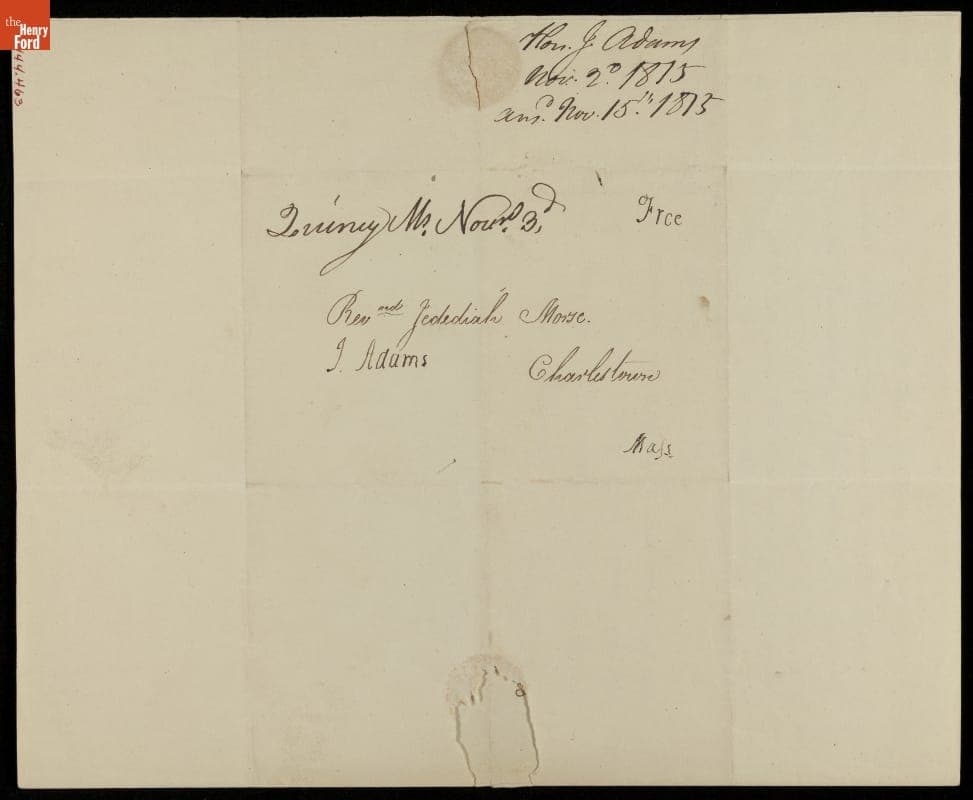 the
Henry
Ford
44.463
Hon. J. Adams
Nov. 2d. 1815
ansd. Nov. 15th. 1815
Quincy Ms. Novr. 3d,
Free
Revand Jedediah Morse.
J. Adams
Charlestown
Mass